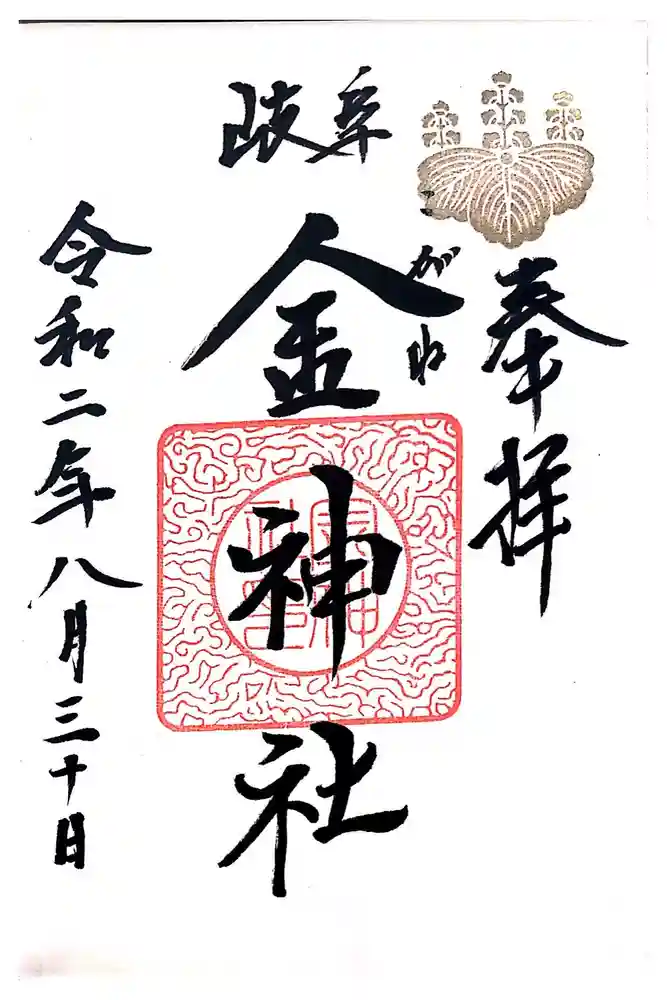 奉拝
岐阜
がね
金神社
令和二年八月三十日